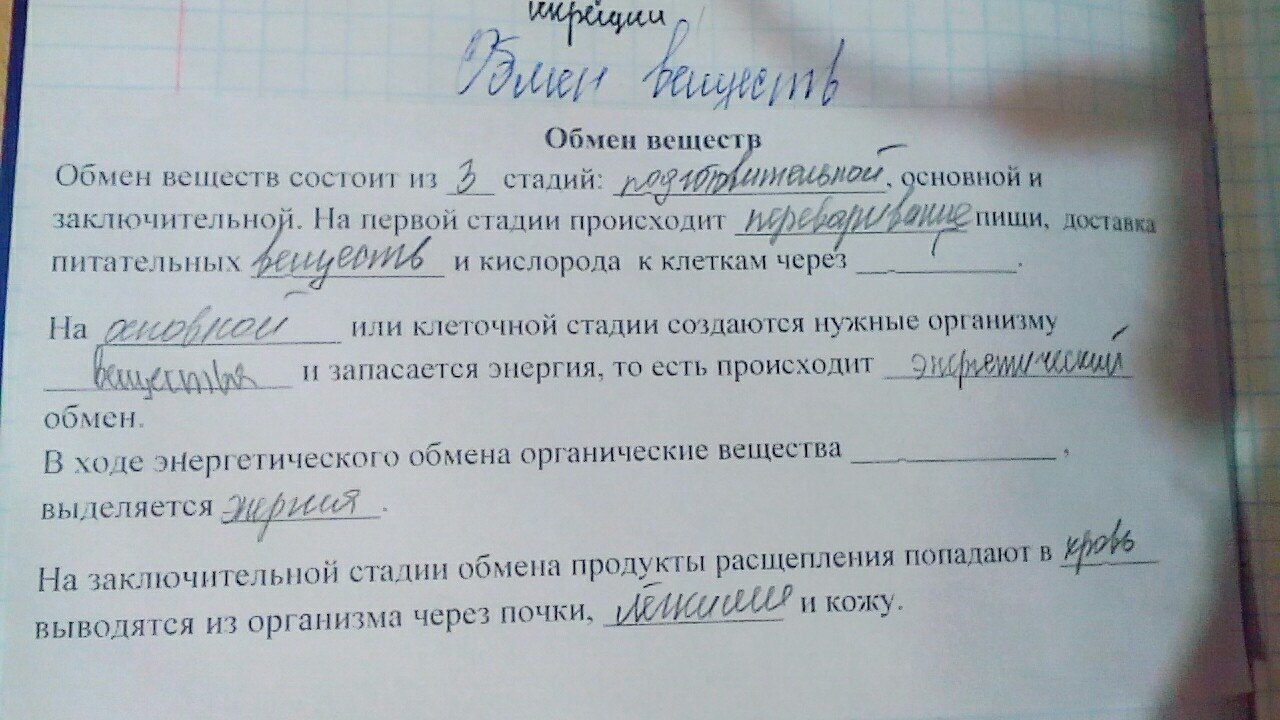 инкреции
Обмен веществ
Обмен веществ
Обмен веществ состоит из 3 стадий: подготовительной, основной и
заключительной. На первой стадии происходит переваривание пищи, доставка
питательных веществ и кислорода к клеткам через ____________.
На основной или клеточной стадии создаются нужные организму
вещества и запасается энергия, то есть происходит энергетический
обмен.
В ходе энергетического обмена органические вещества _______________,
выделяется энергия.
На заключительной стадии обмена продукты расщепления попадают в кровь
выводятся из организма через почки, лёгкими и кожу.